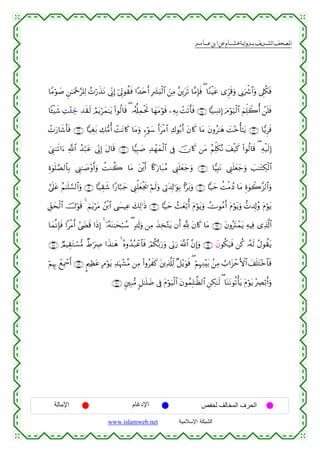 المصحف الشريف برواية هشام عن ابن عامر
فَكُلِي وَاشْرَبِي وَقَرِّي عَيْنًا ۖ فَإِمَّا تَرَيِنَّ مِنَ الْبَشَرِ أَحَدًا فَقُولِي إِنِّي نَذَرْتُ لِلرَّحْمَٰنِ صَوْمًا
فَلَنْ أُكَلِّمَ الْيَوْمَ إِنسِيًّا فَأَتَتْ بِهِ قَوْمَهَا تَحْمِلُهُ ۖ قَالُوا يَٰمَرْيَمُ لَقَد جِّئْتِ شَيْئًا
فَرِيًّا يَٰأُخْتَ هَٰرُونَ مَا كَانَ أَبُوكِ امْرَأَ سَوْءٍ وَمَا كَانَتْ أُمُّكِ بَغِيًّا فَأَشَارَتْ
إِلَيْهِ ۖ قَالُوا كَيْفَ نُكَلِّمُ مَن كَانَ فِي الْمَهْدِ صَبِيًّا قَالَ إِنِّي عَبْدُ اللَّهِ ءَاتَىٰنِيَ
الْكِتَٰبَ وَجَعَلَنِي نَبِيًّا وَجَعَلَنِي مُبَارَكًا أَيْنَ مَا كُنتُ وَأَوْصَٰنِي بِالصَّلَوٰةِ
وَالزَّكَوٰةِ مَا دُمْتُ حَيًّا وَبَرًّا بِوَٰلِدَتِي وَلَمْ يَجْعَلْنِي جَبَّارًا شَقِيًّا وَالسَّلَٰمُ عَلَيَّ
يَوْمَ وُلِدتُّ وَيَوْمَ أَمُوتُ وَيَوْمَ أُبْعَثُ حَيًّا ذَٰلِكَ عِيسَى ابْنُ مَرْيَمَ ۚ قَوْلَ الْحَقِّ
الَّذِي فِيهِ يَمْتَرُونَ مَا كَانَ لِلَّهِ أَن يَتَّخِذَ مِن وَلَدٍ ۖ سُبْحَٰنَهُ ۚ إِذَا قَضَىٰ أَمْرًا فَإِنَّمَا
يَقُولُ لَهُ كُن فَيَكُونَ وَإِنَّ اللَّهَ رَبِّي وَرَبُّكُمْ فَاعْبُدُوهُ ۚ هَٰذَا صِرَٰطٌ مُّسْتَقِيمٌ
فَاخْتَلَفَ الْأَحْزَابُ مِن بَيْنِهِمْ ۖ فَوَيْلٌ لِّلَّذِينَ كَفَرُوا مِن مَّشْهَدِ يَوْمٍ عَظِيمٍ أَسْمِعْ بِهِمْ
وَأَبْصِرْ يَوْمَ يَأْتُونَنَا ۖ لَٰكِنِ الظَّٰلِمُونَ الْيَوْمَ فِي ضَلَٰلٍ مُّبِينٍ
الحرف المخالف لحفص الإدغام الإمالة
الشبكة الإسلامية www.islamweb.net